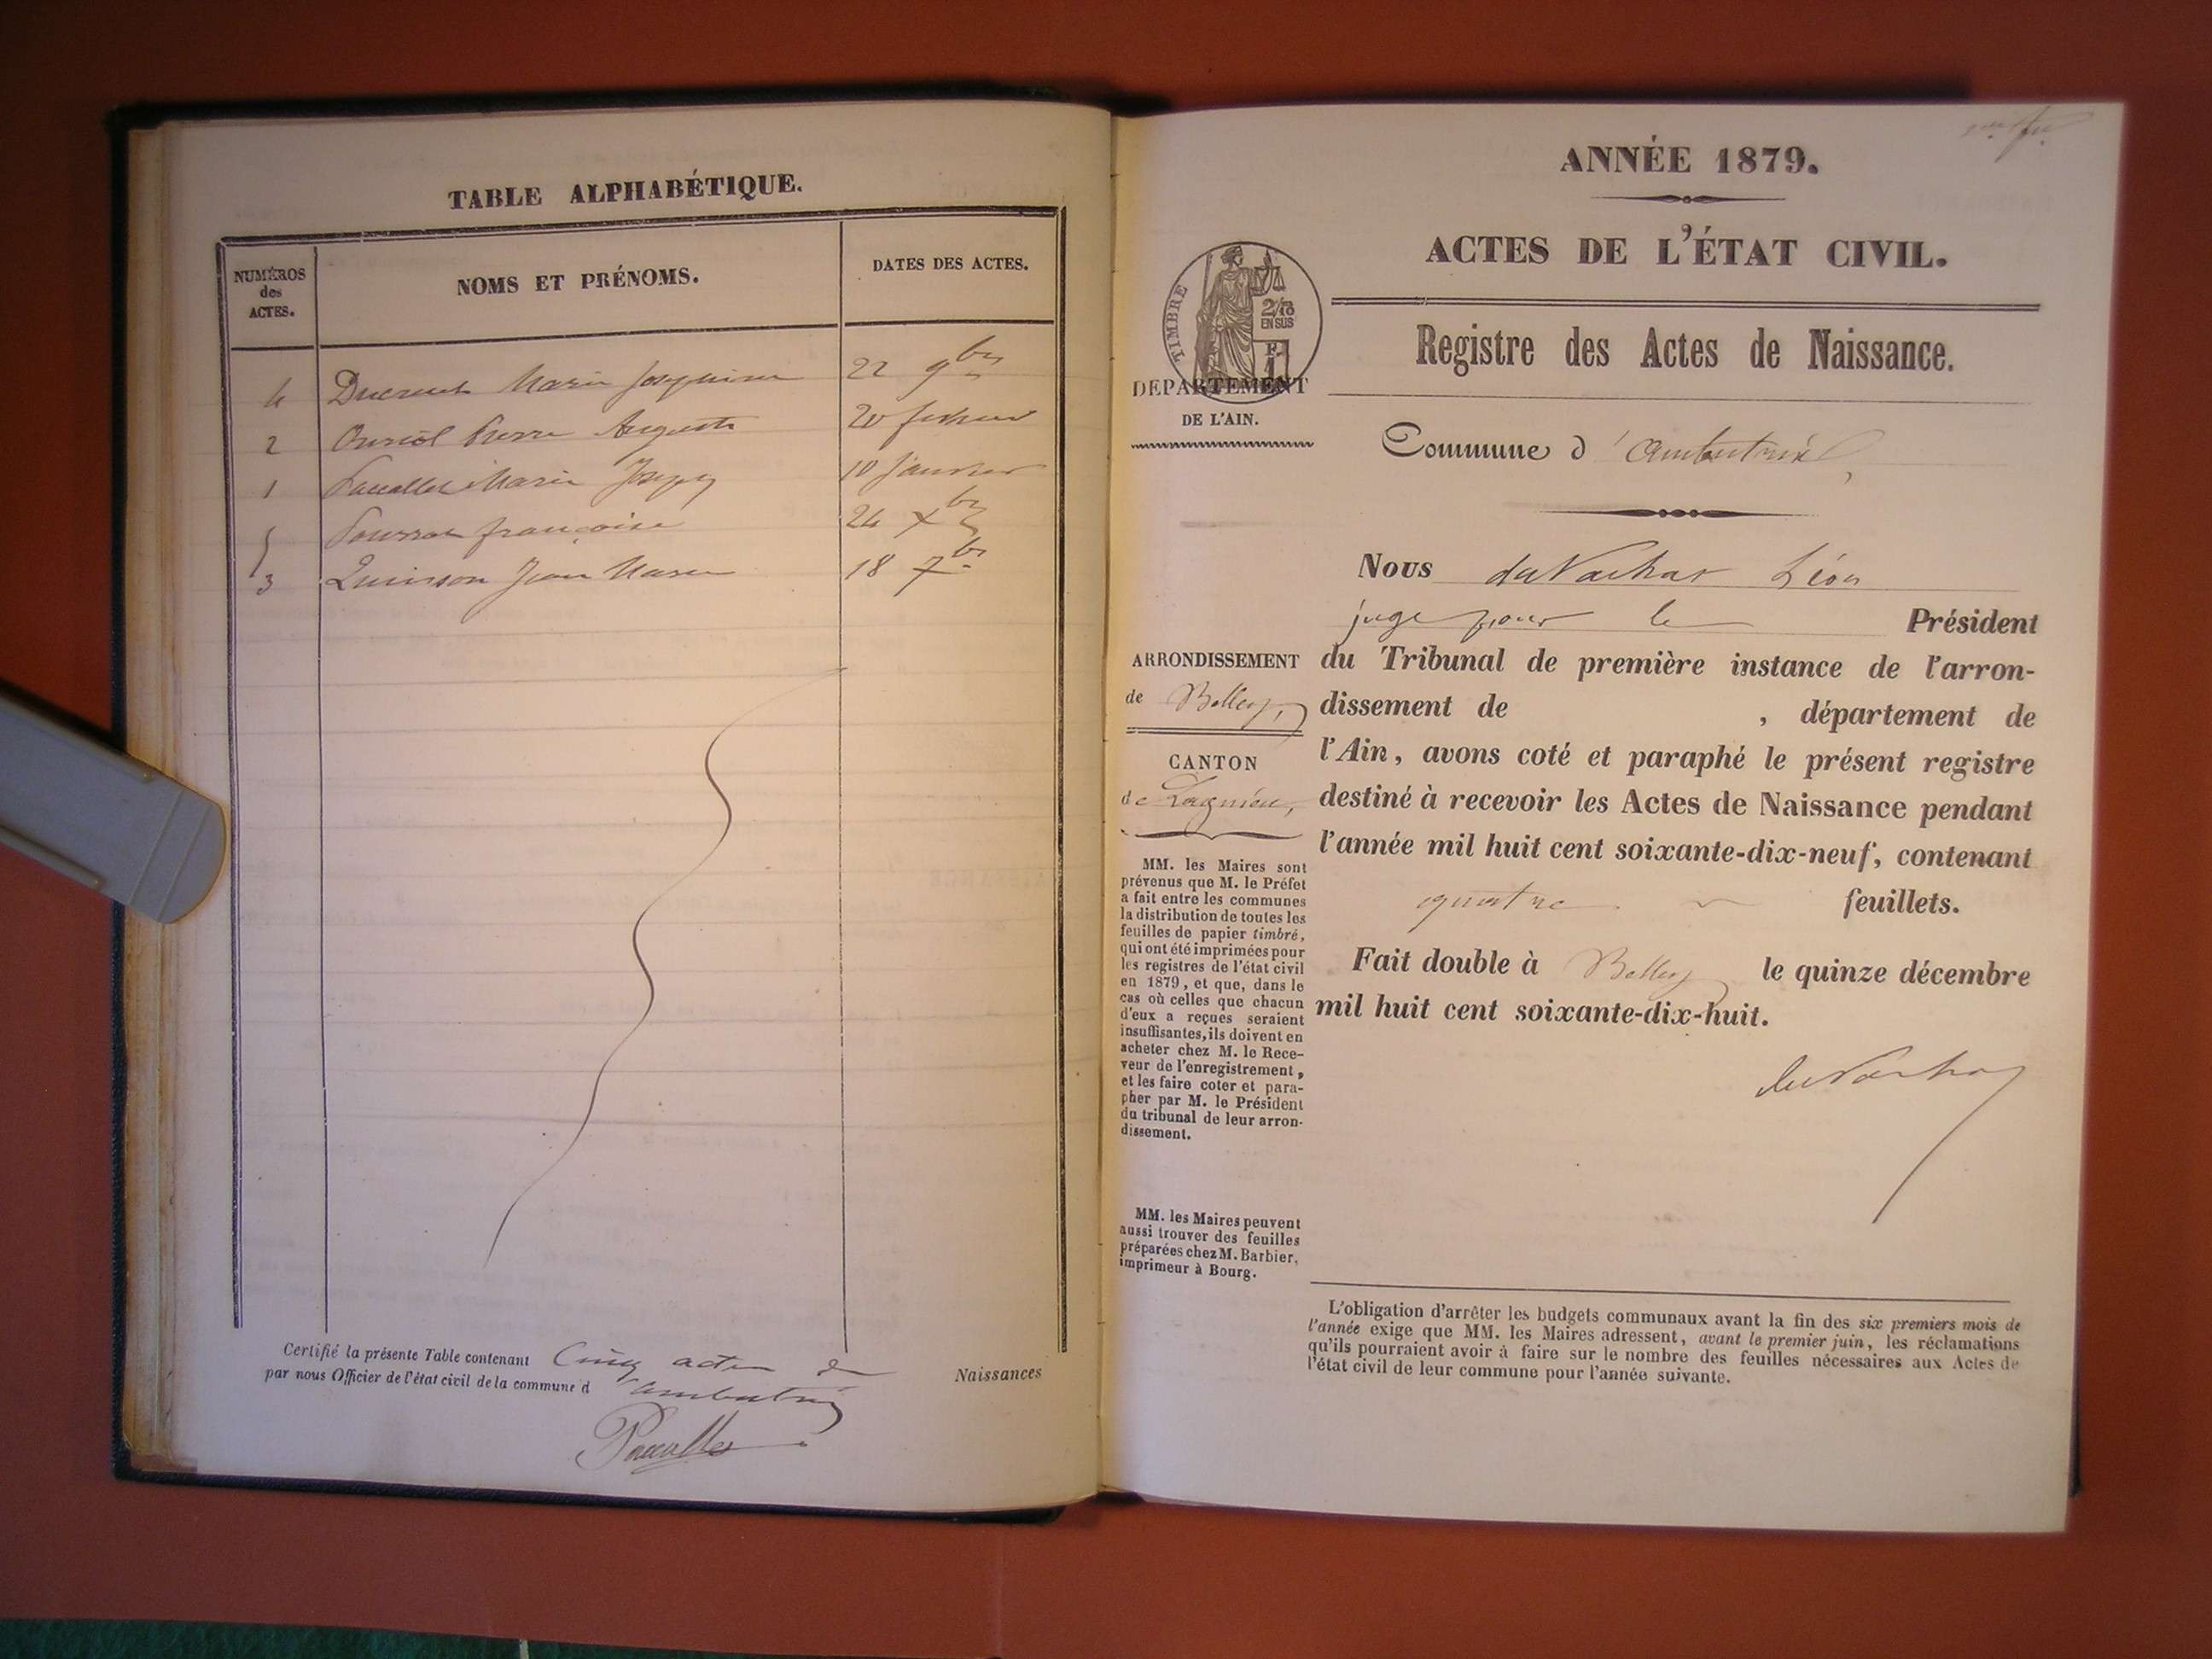 TABLE ALPHABÉTIQUE.
NUMÉROS
des
ACTES.
NOMS ET PRÉNOMS.
DATES DES ACTES.
4 Marie Joséphine 22 9bre
2 Pierre Auguste 20
1 Marie Joseph 10 janvier
5 françoise 24 Xbre
3 Quinson Jean Marie 18 7bre
Certifié la présente Table contenant Cinq actes de Naissances
par nous Officier de l'état civil de la commune d'ambutrix
ANNÉE 1879.
ACTES DE L'ÉTAT CIVIL.
TIMBRE
2/10
EN SUS
DEPARTEMENT
DE L'AIN.
Registre des Actes de Naissance.
Commune d'ambutrix
Nous Léon
juge pour le Président
ARRONDISSEMENT
de Belley,
CANTON
de Lagnieu,
du Tribunal de première instance de l'arron-
dissement de , département de
l'Ain, avons coté et paraphé le présent registre
destiné à recevoir les Actes de Naissance pendant
l'année mil huit cent soixante-dix-neuf, contenant
quatre feuillets.
Fait double à Belley le quinze décembre
mil huit cent soixante-dix-huit.
MM. les Maires sont
prévenus que M. le Préfet
a fait entre les communes
la distribution de toutes les
feuilles de papier timbré,
qui ont été imprimées pour
les registres de l'état civil
en 1879, et que, dans le
cas où celles que chacun
d'eux a reçues seraient
insuffisantes, ils doivent en
acheter chez M. le Rece-
veur de l'enregistrement,
et les faire coter et para-
pher par M. le Président
du tribunal de leur arron-
dissement.
MM. les Maires peuvent
aussi trouver des feuilles
préparées chez M. Barbier,
imprimeur à Bourg.
L'obligation d'arrêter les budgets communaux avant la fin des six premiers mois de
l'année exige que MM. les Maires adressent, avant le premier juin, les réclamations
qu'ils pourraient avoir à faire sur le nombre des feuilles nécessaires aux Actes de
l'état civil de leur commune pour l'année suivante.